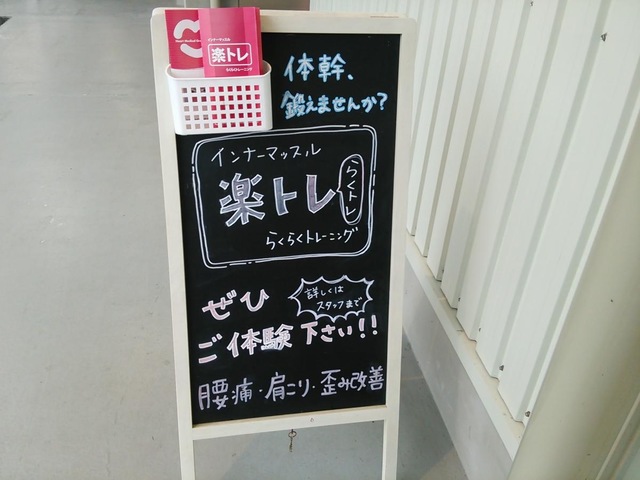 インナーマッスル
楽トレ
らくらくトレーニング
体幹、
鍛えませんか?
インナーマッスル
楽トレ
らくトレ
らくらくトレーニング
ぜひ
詳しくは
スタッフまで
ご体験下さい!!
腰痛・肩こり・歪み改善